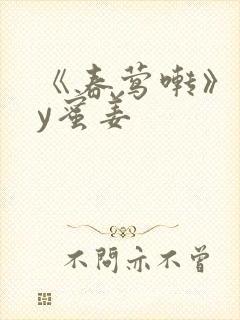 《春莺啭》
y蜜姜
不問亦不曾